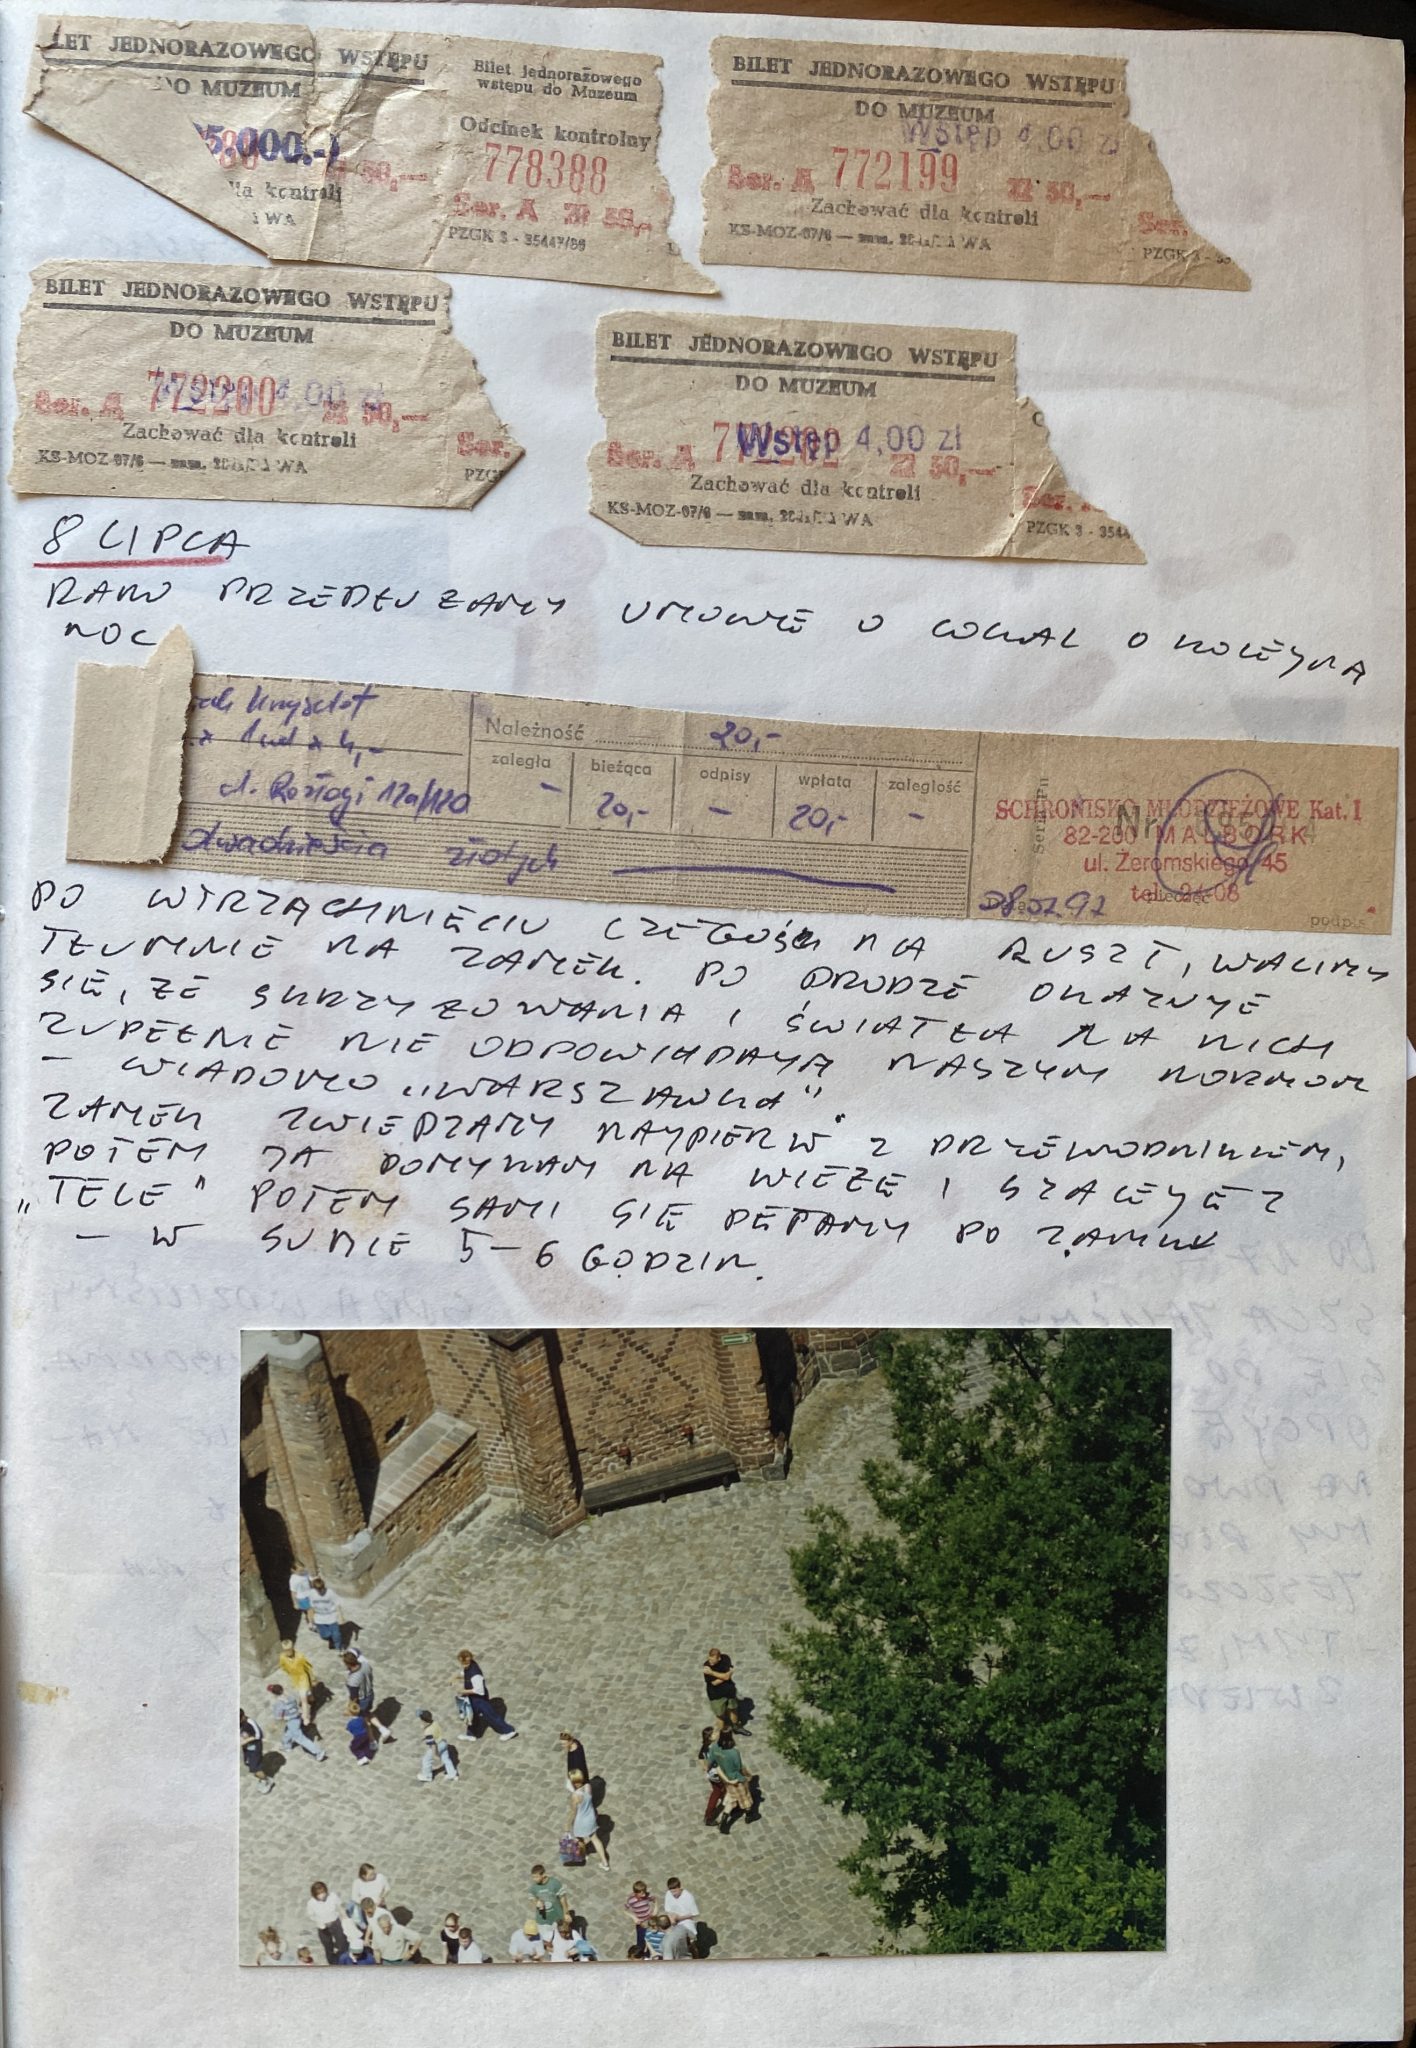 LET JEDNORAZOWEGO WSTĘPU
DO MUZEUM
5.000.-
50,—
dla kontroli
WA
Bilet jednorazowego
wstępu do Muzeum
Odcinek kontrolny
778388
Ser. A Zł 50,-
PZGK 3 - 35447/86
BILET JEDNORAZOWEGO WSTĘPU
DO MUZEUM
Wstęp 4,00 zł
Ser. A 772199 Zł 50,—
Zachować dla kontroli
KS-MOZ-97/6 — zam. WA
Ser.
PZGK 3 - 35
BILET JEDNORAZOWEGO WSTĘPU
DO MUZEUM
Wstęp 4,00 zł
Ser. A 772200 Zł 50,—
Zachować dla kontroli
KS-MOZ-97/6 — zam. WA
Ser.
PZG
BILET JEDNORAZOWEGO WSTĘPU
DO MUZEUM
Wstęp 4,00 zł
Ser. A Zł 50,—
Zachować dla kontroli
KS-MOZ-97/6 — zam. WA
Ser.
PZGK 3 - 354
8 LIPCA
RANO PRZEDŁUŻAMY UMOWĘ O LOKAL O KOLEJNĄ
NOC
Krzysztof
Należność 20,-
zaległa bieżąca odpisy wpłata zaległość
- 20,- - 20,- -
ul. Rozłogi 12a/120
dwadzieścia złotych
SCHRONISKO MŁODZIEŻOWE Kat. I
82-200 MALBORK
ul. Żeromskiego 45
tel. 24-08
08.07.97
podpis
PO WTRZĄCHNIĘCIU CZEGOŚ NA RUSZT, WALIMY
TŁUMNIE NA ZAMEK. PO DRODZE OKAZUJE
SIĘ, ŻE SKRZYŻOWANIA I ŚWIATŁA NA NICH
ZUPEŁNIE NIE ODPOWIADAJĄ NASZYM NORMOM
- WIADOMO „WARSZAWKA".
ZAMEK ZWIEDZAMY NAJPIERW Z PRZEWODNIKIEM,
POTEM JA POMYKAM NA WIEŻĘ I SZALEJĘ Z
„TELE" POTEM SAMI SIĘ PĘTAMY PO ZAMKU
- W SUMIE 5-6 GODZIN.